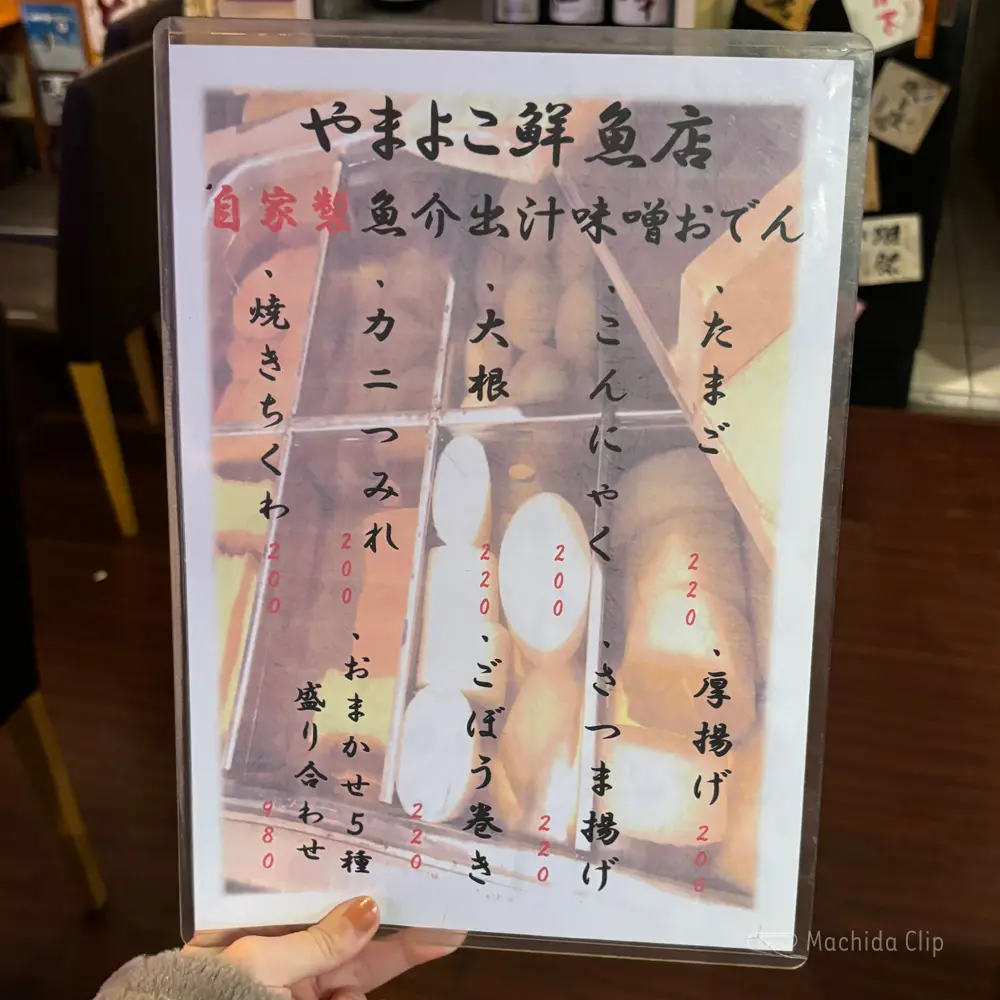 やまよこ鮮魚店
自家製魚介出汁味噌おでん
・たまご 220
・こんにゃく 200
・大根 220
・カニつみれ 200
・焼きちくわ 200
・厚揚げ 200
・さつま揚げ 220
・ごぼう巻き 220
・おまかせ5種
盛り合わせ 980
Machida Clip